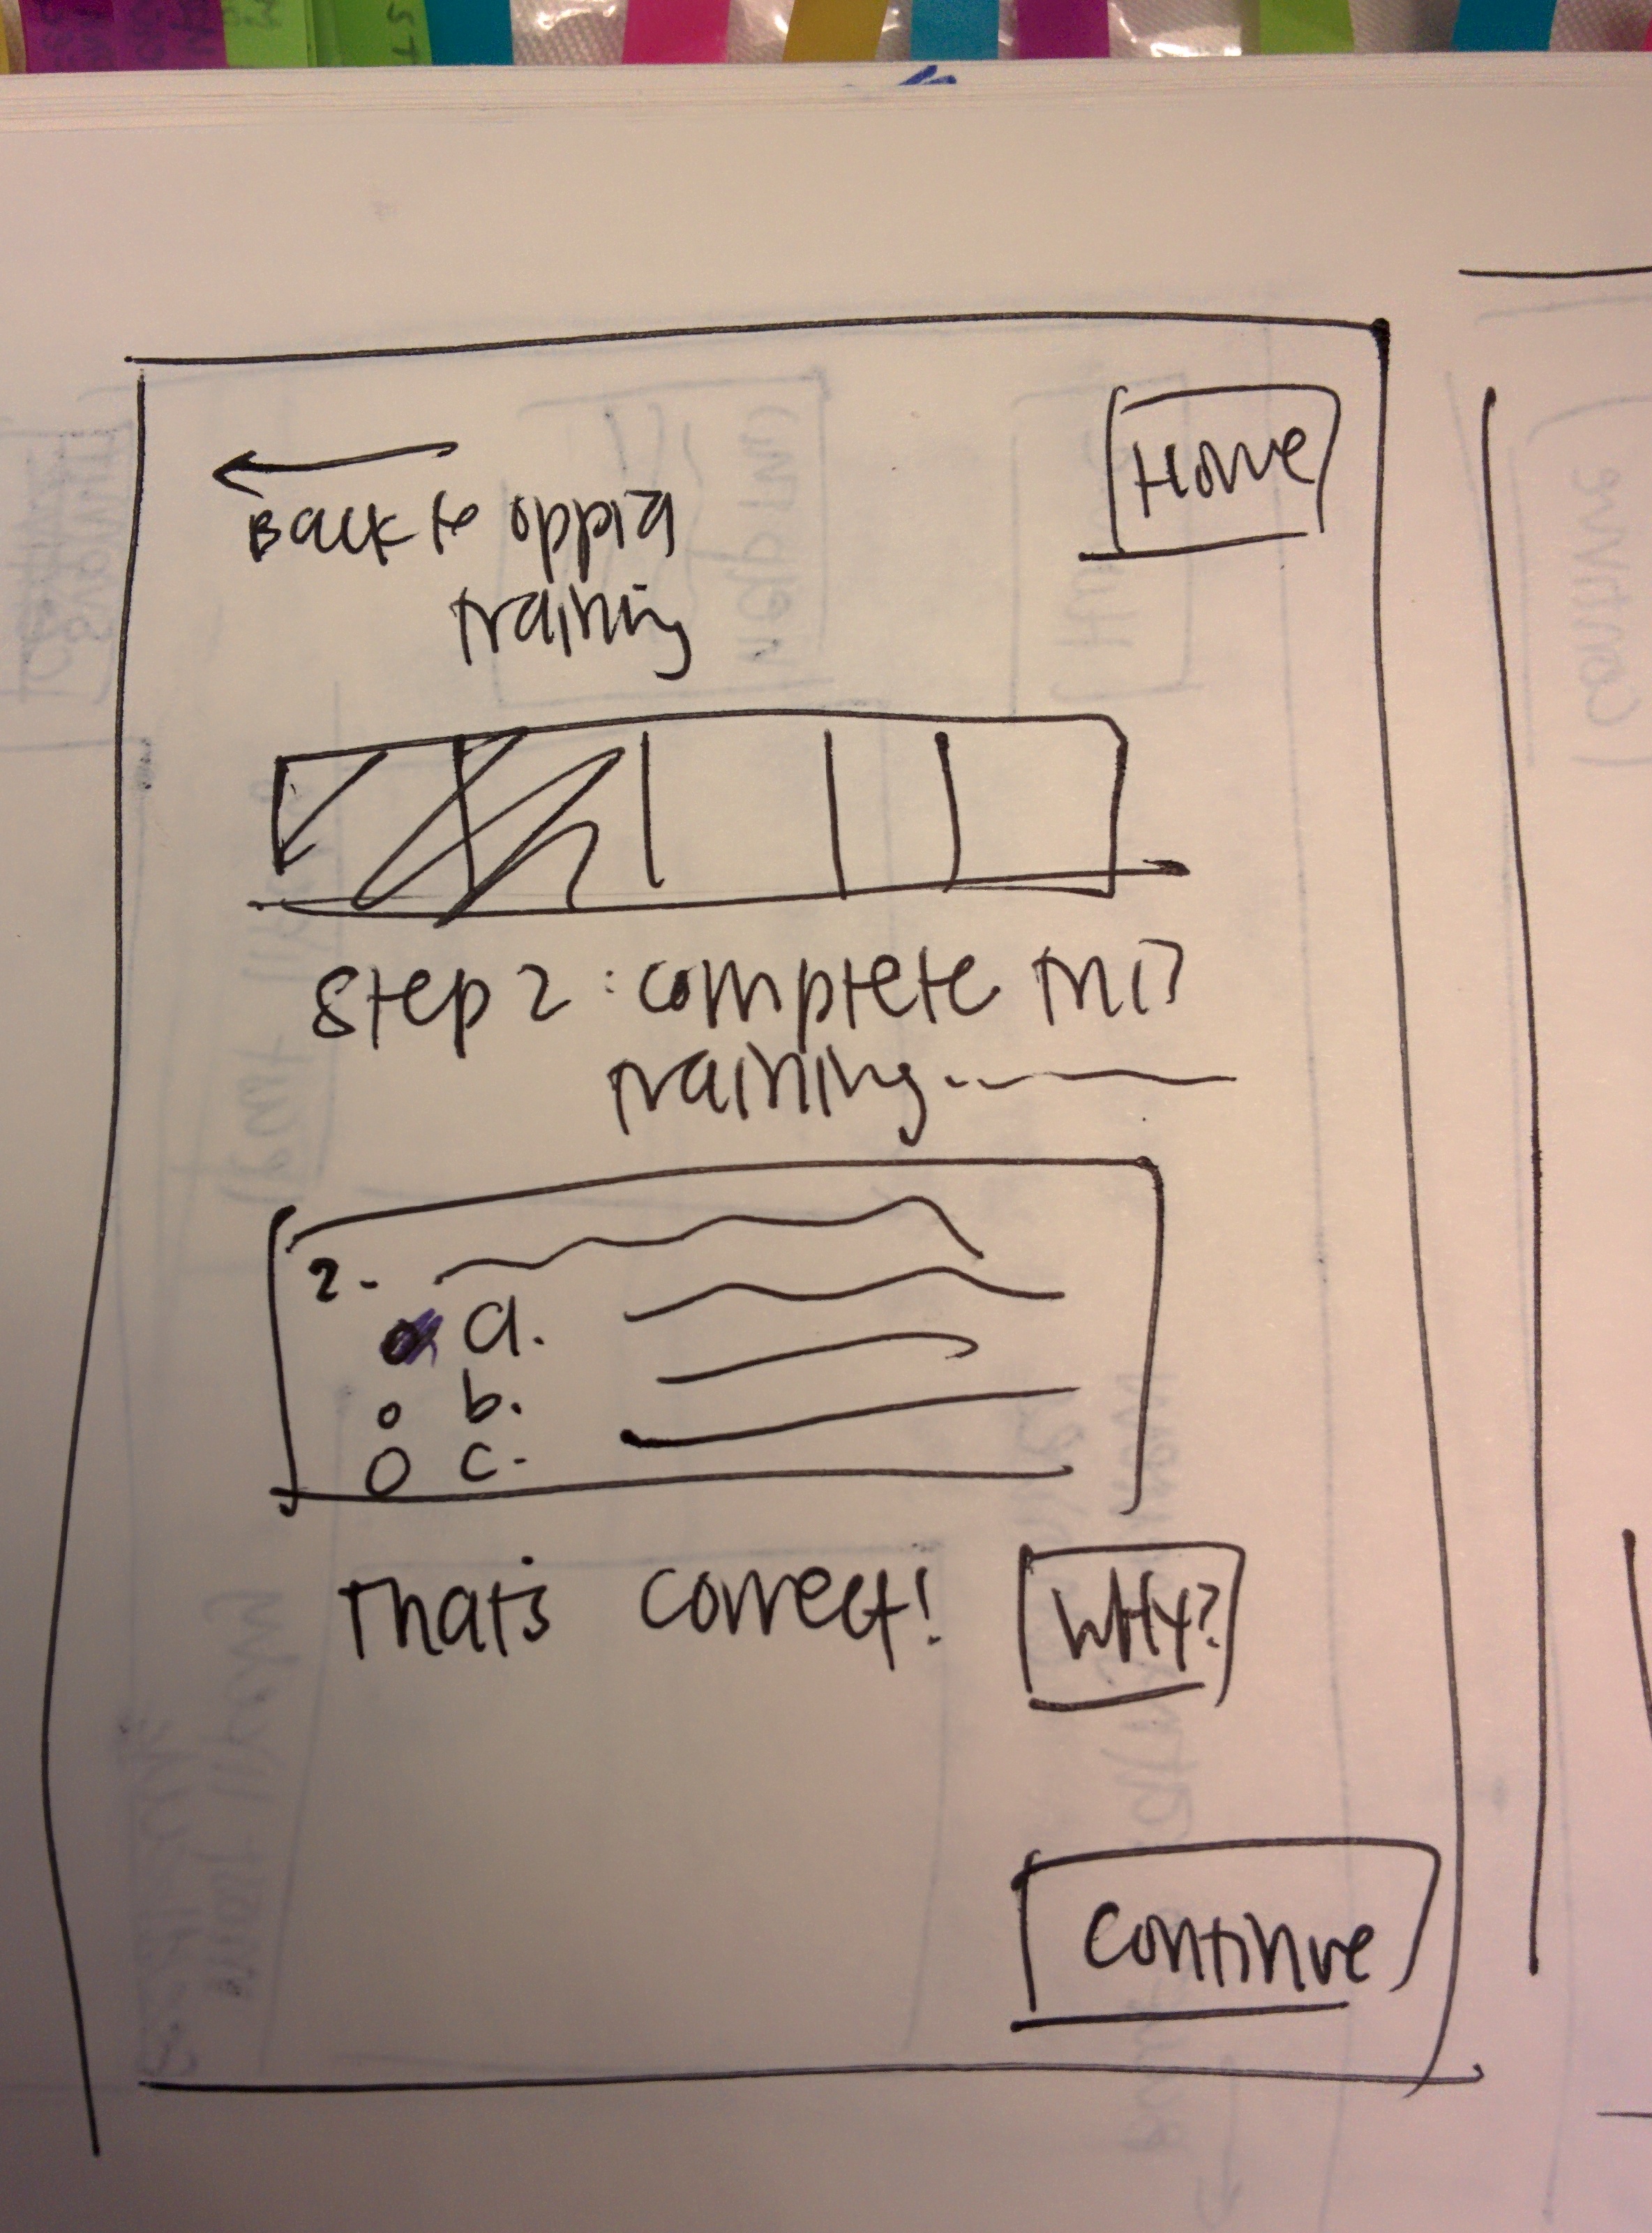 Home
Back to oppia
training
Step 2 : complete this
training
2.
a.
b.
c.
That's correct!
WHY?
Continue